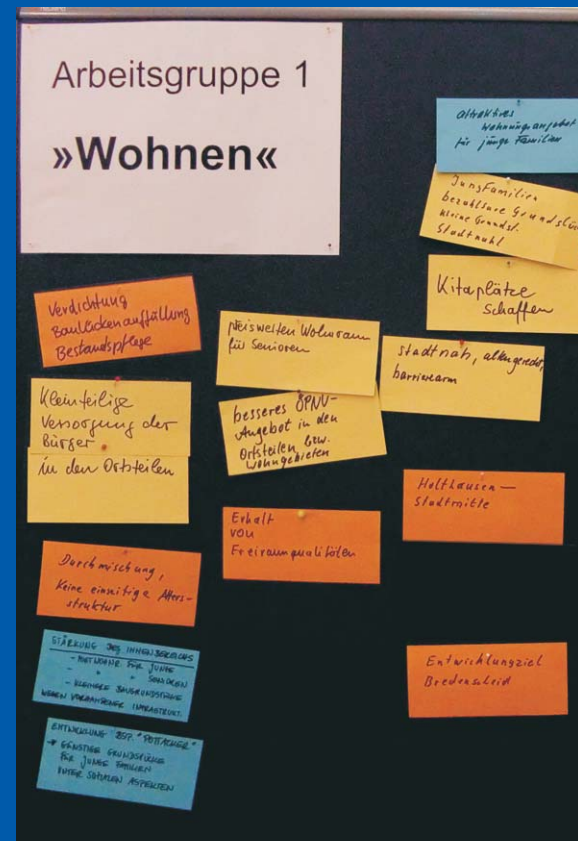 Arbeitsgruppe 1
»Wohnen«
attraktives
Wohnungsangebot
für junge Familien
Jung Familien
bezahlbare
kleine Grundst.
Stadtnah
Kitaplätze
schaffen
Verdichtung
Baulückenauffüllung
Bestandspflege
preiswerten Wohnraum
für Senioren
stadtnah, altengerecht,
barrierearm
Kleinteilige
Versorgung der
Bürger
in den Ortsteilen
besseres ÖPNV-
Angebot in den
Ortsteilen bzw.
Wohngebieten
Holthausen —
Stadtmitte
Erhalt
von
Freiraumqualitäten
Durchmischung,
Keine einseitige Alters-
struktur
STÄRKUNG DES INNENBEREICHS
FÜR JUNGE
- " " SENIOREN
- KLEINERE BAUGRUNDSTÜCKE
WEGEN VORHANDENER INFRASTRUKT.
Entwicklungziel
Bredenscheid
ENTWICKLUNG
→ GÜNSTIGE GRUNDSTÜCKE
FÜR JUNGE FAMILIEN
UNTER SOZIALEN ASPEKTEN